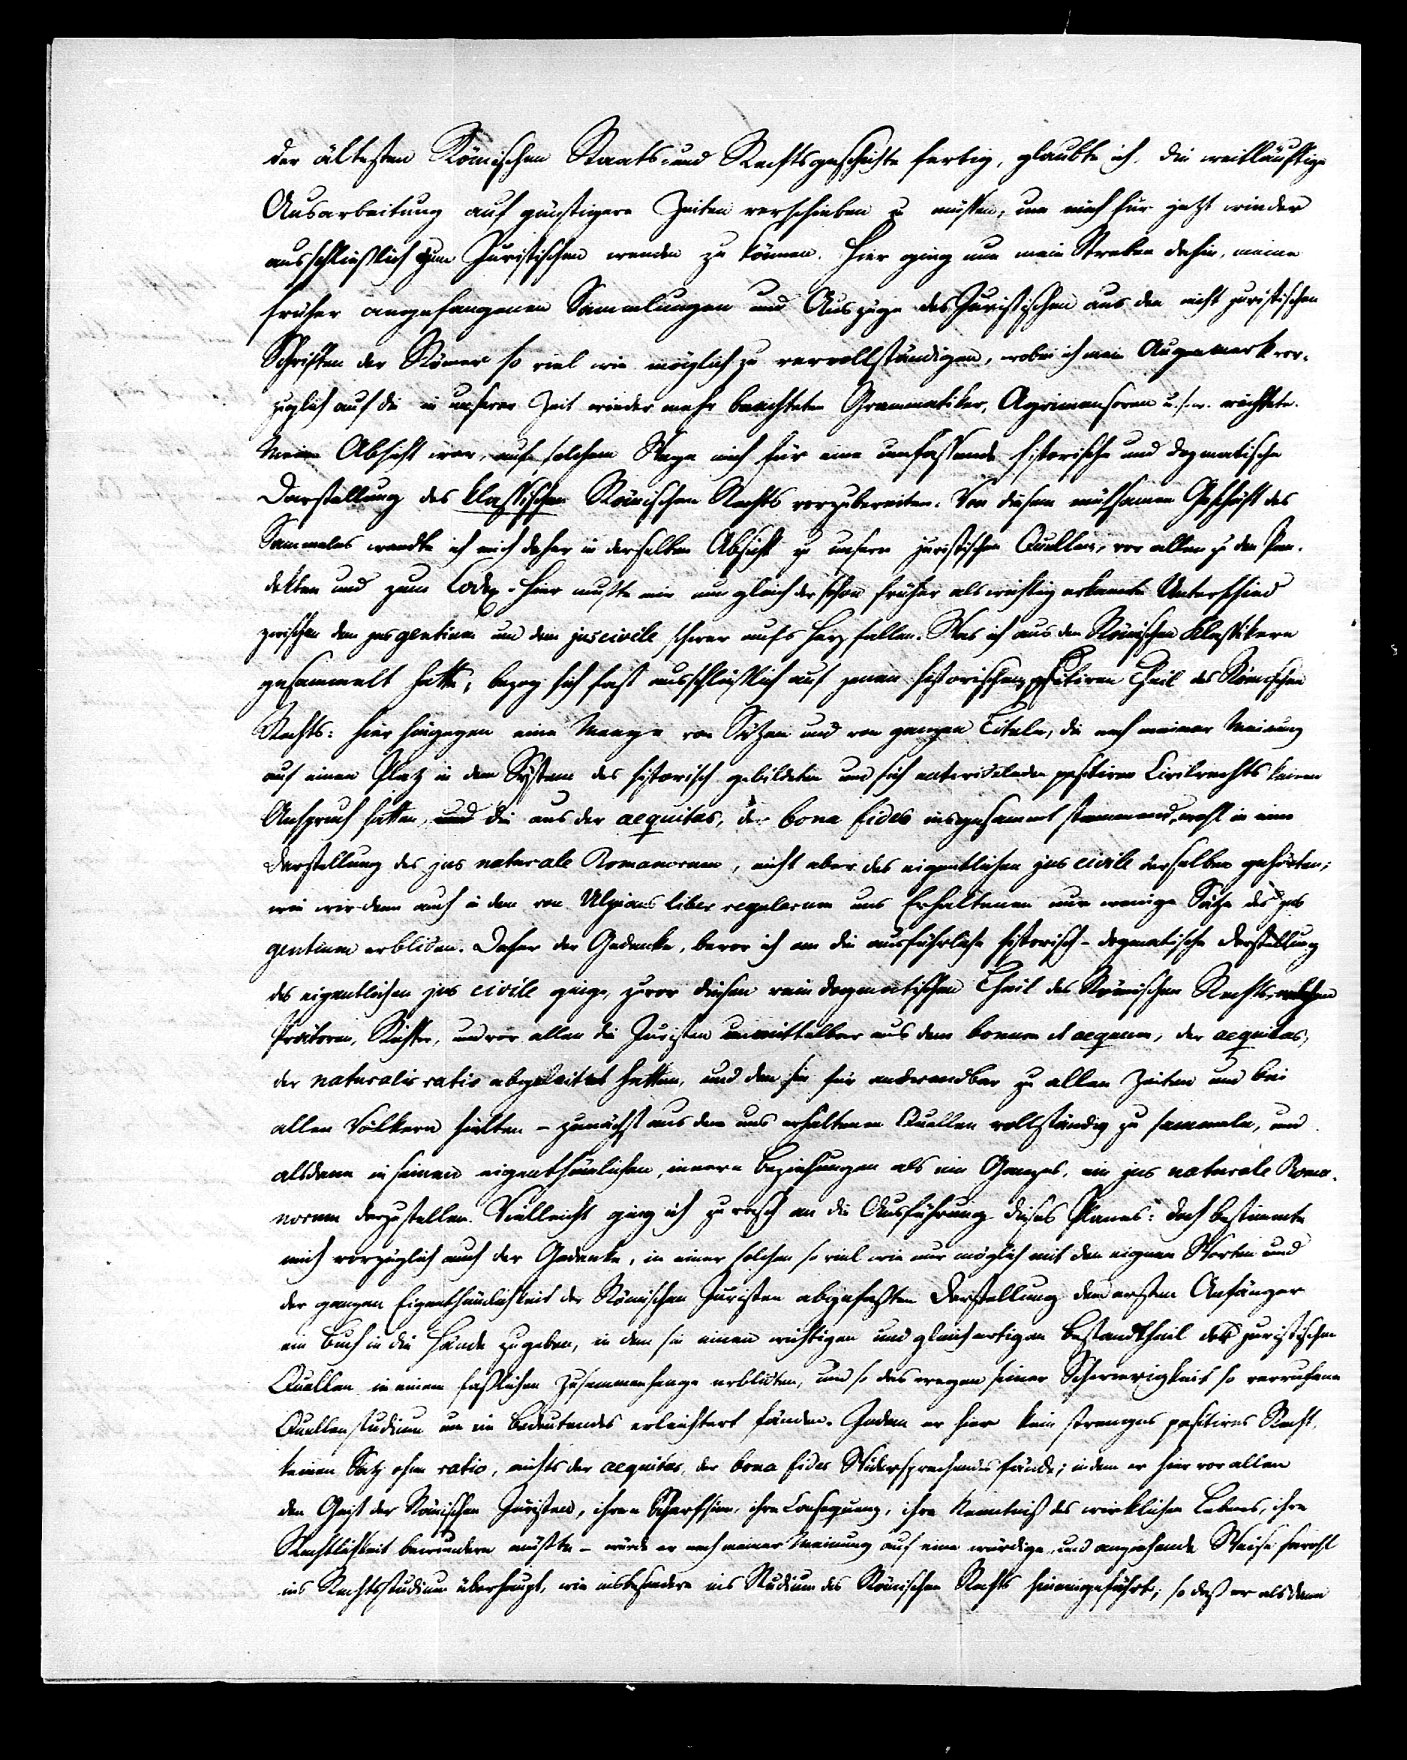 der ältesten Römischen Staats- und Rechtsgeschichte fertig, glaubte ich, die weitläuftige
Ausarbeitung auf günstigere Zeiten verschieben zu müssen, um mich für jetzt wieder
ausschließlich zum Juristischen wenden zu können. Hier ging nun mein Streben dahin, meine
früher angefangenen Sammlungen und Auszüge des Juristischen aus den nicht juristischen
Schriften der Römer so viel wie möglich zu vervollständigen, wobei ich mein Augenmerk vor-
züglich auf die in unserer Zeit wieder mehr beachteten Grammatiker, Agrimensoren u.s.w. richtete.
Meine Absicht war, auf solchem Wege mich für eine umfassende historische und dogmatische
Darstellung des klassischen Römischen Rechts vorzubereiten. Von diesem mühsamen Geschäft des
Sammelns wandte ich mich daher in derselben Absicht zu unsern juristischen Quellen, vor allen zu den Pan-
dekten und zum Codex. Hier mußte mir nun gleich der schon früher als wichtig erkannte Unterschied
zwischen dem jus gentium und dem jus civile schwer aufs Herz fallen. Was ich aus den Römischen Klassikern
gesammelt hatte, bezog sich fast ausschließlich auf jenen historischen, positiven Theil des Römischen
Rechts: hier hingegen eine Menge von Sätzen und von ganzen Titeln, die nach meiner Meinung
auf einen Platz in dem System des historisch gebildeten und sich entwickelnden positiven Civilrechts keinen
Anspruch hatten, und die aus der aequitas, der bona fides insgesammt stammend, wohl in eine
Darstellung des jus naturale Romanorum, nicht aber des eigentlichen jus civile derselben gehörten;
wie wir denn auch in dem von Ulpians liber regularum uns Erhaltenen nur wenige Sätze des jus
gentium erblicken. Daher der Gedanke, bevor ich an die ausführliche historisch-dogmatische Darstellung
des eigentlichen jus civile ginge, zuvor diesen rein dogmatischen Theil des Römischen Rechts, welchen
Prätoren, Richter, und vor allen die Juristen unmittelbar aus dem bonum et aequum, der aequitas,
der naturalis ratio abgeleitet hatten, und den sie für anwendbar zu allen Zeiten und bei
allen Völkern hielten – zunächst aus den uns erhaltenen Quellen vollständig zu sammeln, und
alsdann in seinen eigenthümlichen, innern Beziehungen als ein Ganzes, ein jus naturale Roma-
norum darzustellen. Vielleicht ging ich zu rasch an die Ausführung dieses Planes: doch bestimmte
mich vorzüglich auch der Gedanke, in einer solchen so viel wie nur möglich mit den eignen Worten und
der ganzen Eigenthümlichkeit der Römischen Juristen abgefaßten Darstellung dem ersten Anfänger
ein Buch in die Hände zu geben, in dem sie einen wichtigen und gleichartigen Bestandtheil der juristischen
Quellen in einem faßlichen Zusammenhange erblickten, und so das wegen seiner Schwierigkeit so verrufene
Quellenstudium um ein Bedeutendes erleichtert fänden. Indem er hier kein strenges positives Recht,
keinen Satz ohne ratio, nichts der aequitas, der bona fides Widersprechendes fände; indem er hier vor allen
den Geist der Römischen Juristen, ihren Scharfsinn, ihre Consequenz, ihre Kenntniß des wirklichen Lebens, ihre
Rechtlichkeit bewundern müßte – würde er nach meiner Meinung auf eine würdige und anziehende Weise sowohl
ins Rechtsstudium überhaupt, wie insbesondere ins Studium des Römischen Rechts hineingeführt; so daß er alsdann